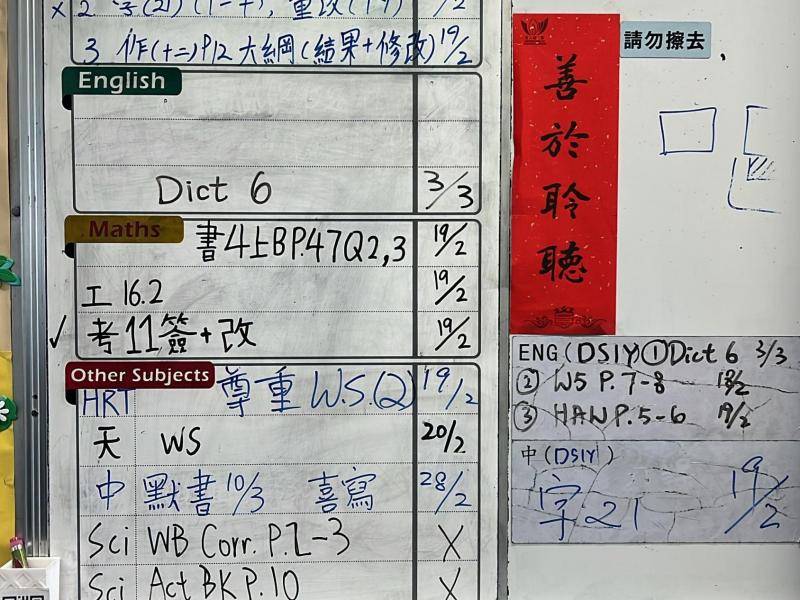 3 作(十二)P12 大綱(結果+修改) 19/2
English
Dict 6 3/3
Maths
書4上B P.47 Q2,3 19/2
工 16.2 19/2
✓ 考11簽+改 19/2
Other Subjects
HRT 尊重 W.S.(2) 19/2
天 WS 20/2
中 默書 10/3 喜寫 28/2
Sci WB Corr. P.2-3 X
Sci Act BK P.10 X
善於聆聽
請勿擦去
ENG (DSIY) ① Dict 6 3/3
② WS P.7-8
③ HAW P.5-6 19/2
中 (DSIY)
字 21 19/2